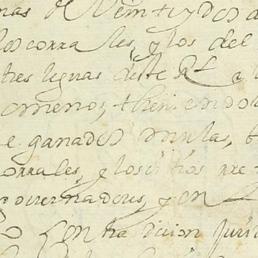 nas de Veinte y dos d
los corrales, y los del
tres leguas deste Rl y
o menos, thiniendo
e ganados mulas, t
orrales, y los
governadores, y en
contradicion Juri